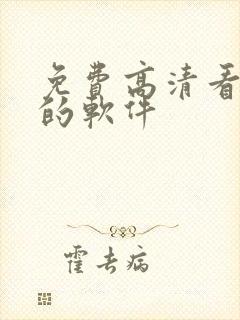 免費高清看
的軟件
霍去病